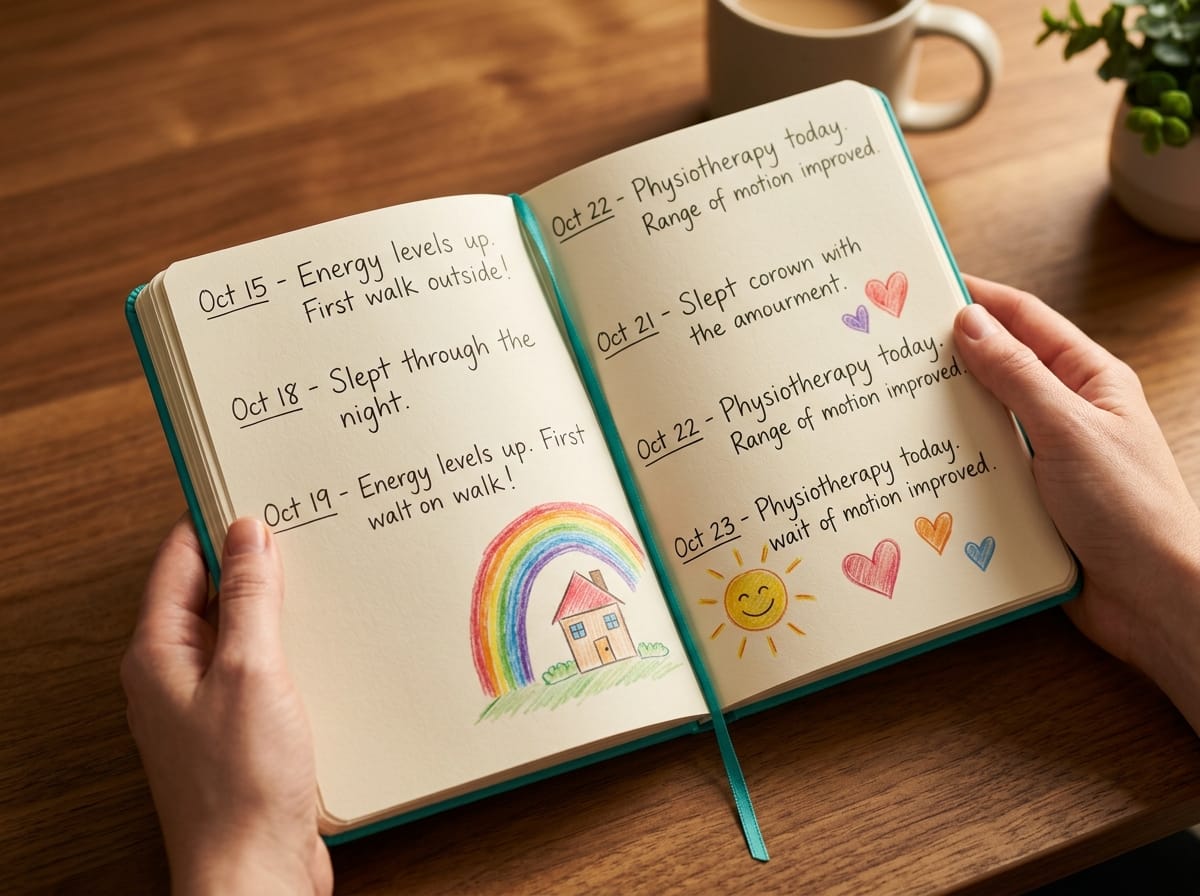 Oct 15 - Energy levels up.
First walk outside!
Oct 18 - Slept through the
night.
Oct 19 - Energy levels up. First
walt on walk!
Oct 22 - Physiotherapy today.
Range of motion improved.
Oct 21 - Slept corown with
the amourment.
Oct 22 - Physiotherapy today.
Range of motion improved.
Oct 23 - Physiotherapy today.
wait of motion improved.